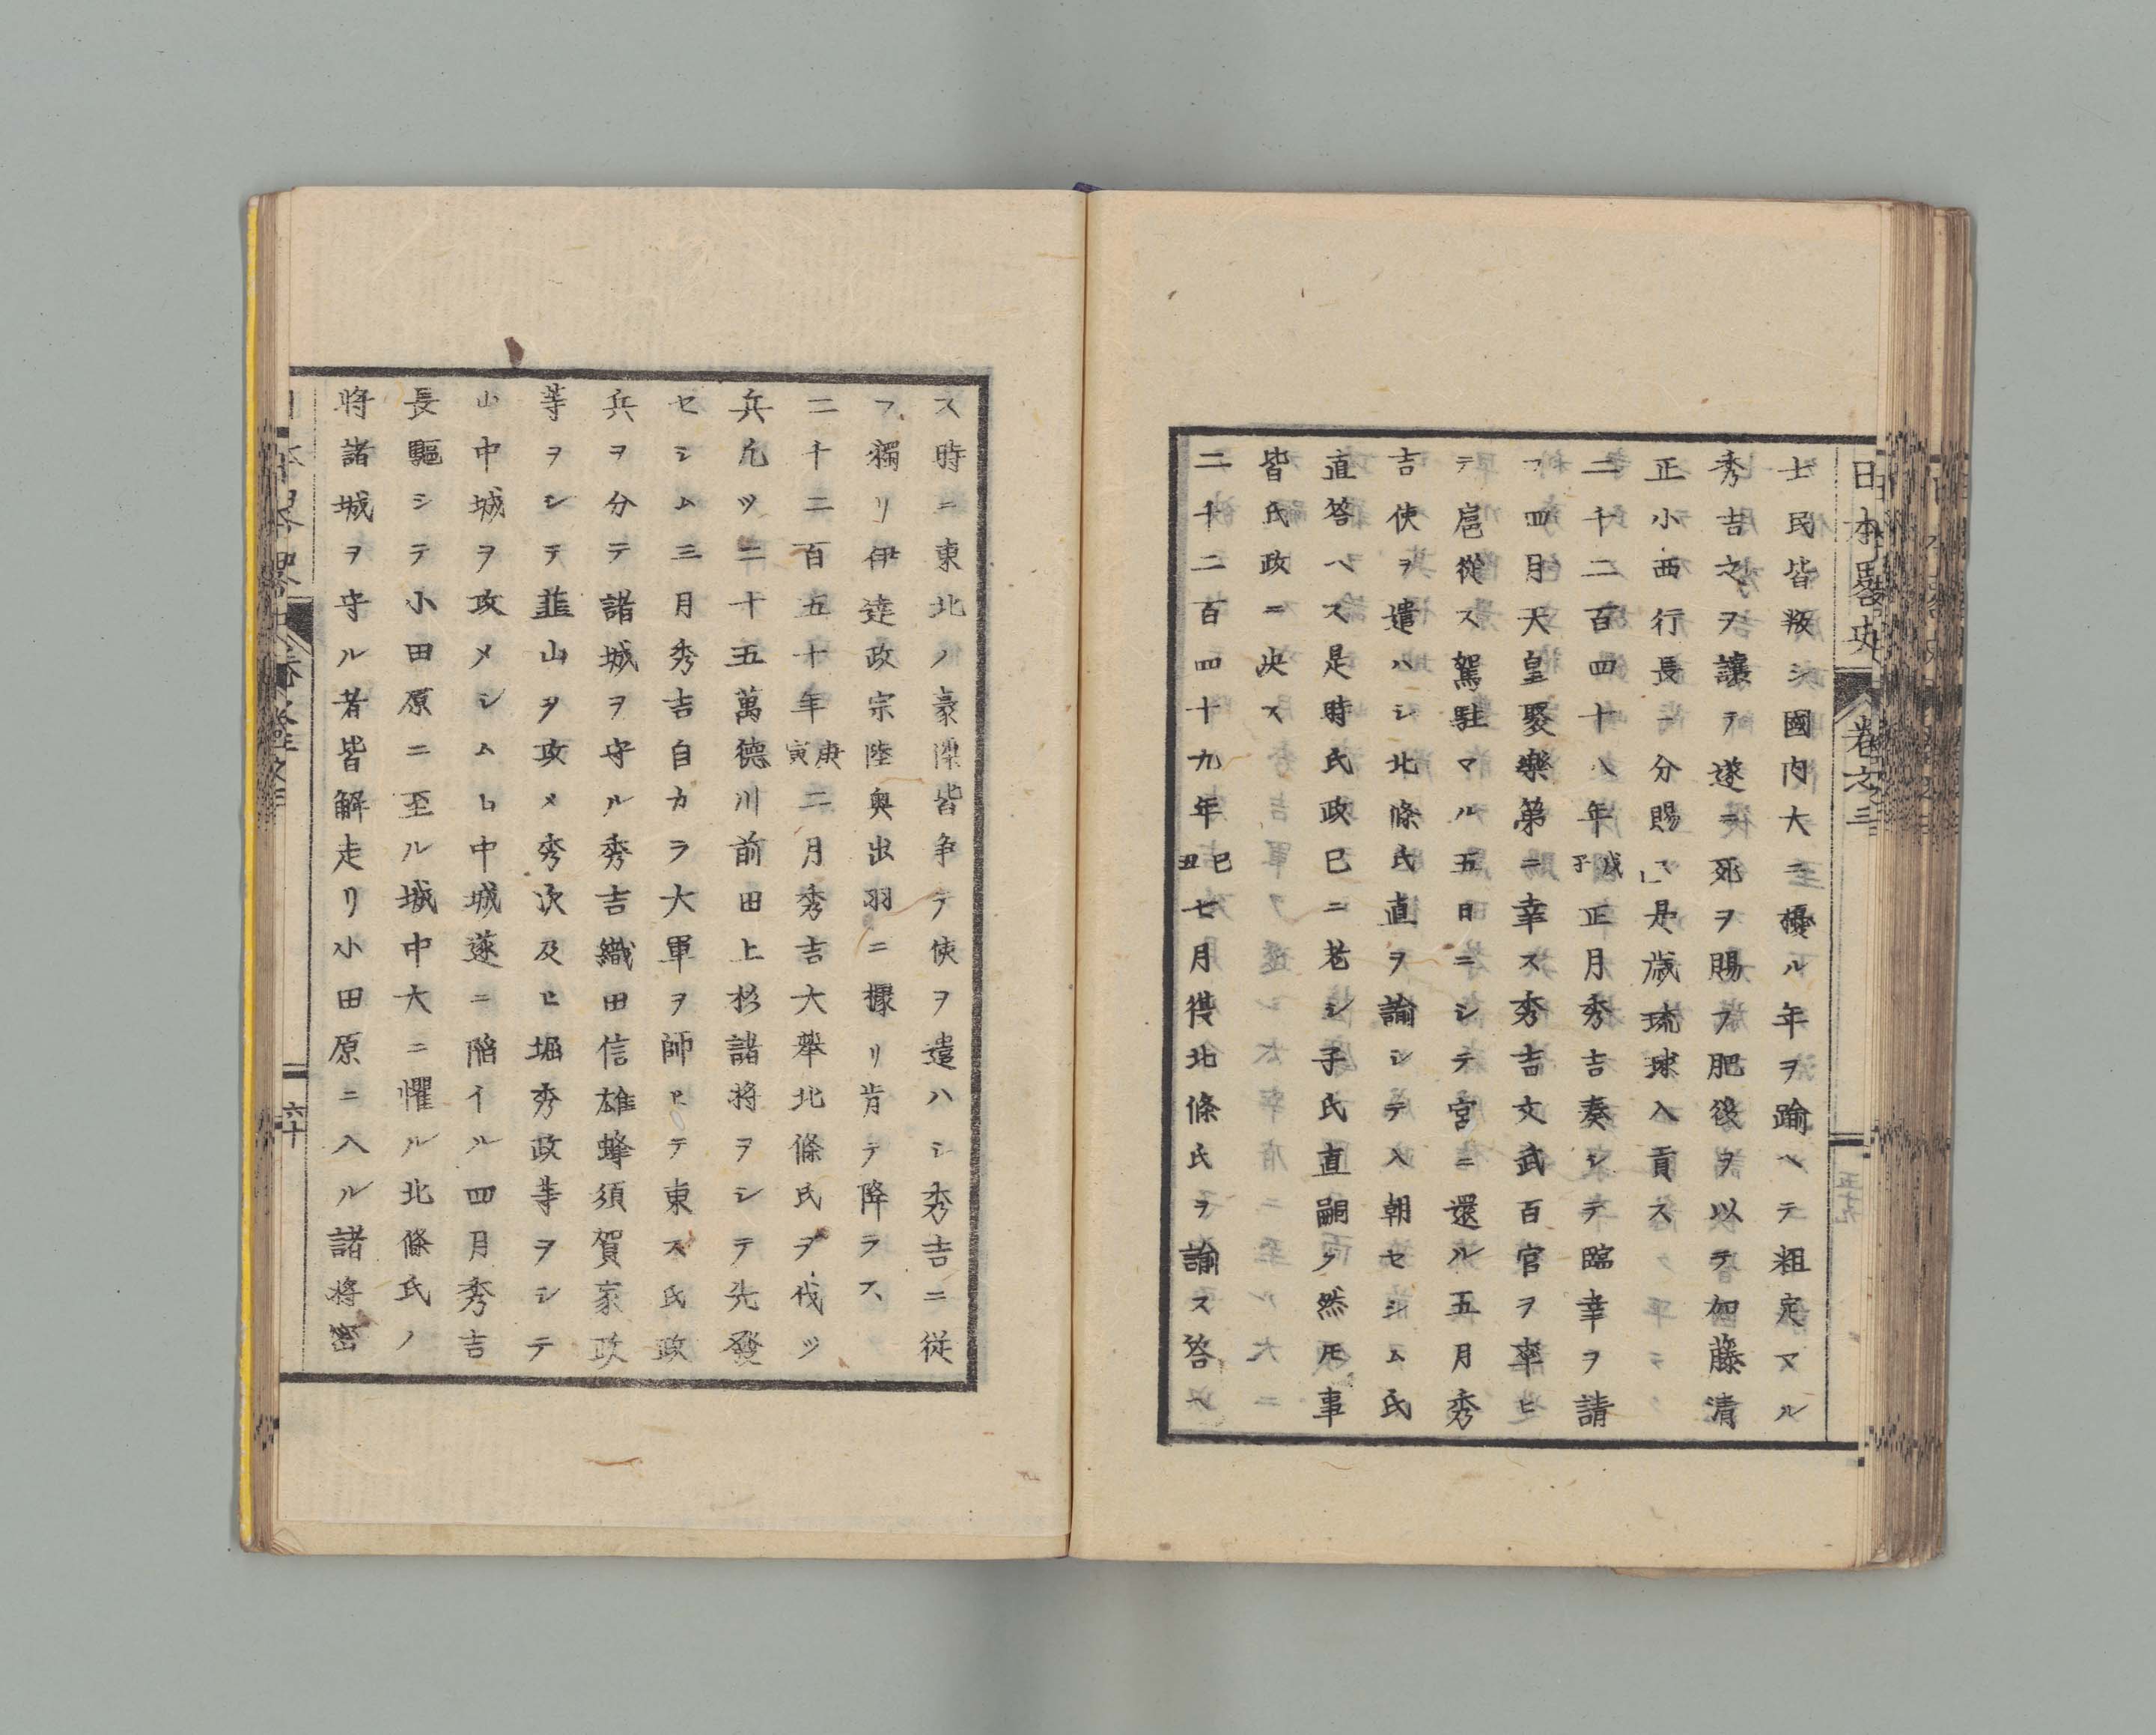 日本畧史 卷之三
五十九
士民皆叛シ國內大ニ擾ル年ヲ踰ヘテ粗定マル
秀吉之ヲ讓テ遂ニ死ヲ賜フ肥後ヲ以テ加藤清
正小西行長ニ分賜ス是歲琉球入貢ス
二千二百四十八年戊子正月秀吉奏シテ臨幸ヲ請
フ四月天皇聚樂第ニ幸ス秀吉文武百官ヲ率ヒ
テ扈從ス駕駐マル五日ニシテ宮ニ還ル五月秀
吉使ヲ遣ハシ北條氏直ヲ諭シテ入朝セシム氏
直答ヘス是時氏政已ニ老シ子氏直嗣ク然𪜈事
皆氏政ニ決ス
二千二百四十九年己丑七月復北條氏ヲ諭ス答ヘ
ス時ニ東北ノ豪傑皆争テ使ヲ遣ハシ秀吉ニ従
フ獨リ伊達政宗陸奥出羽ニ據リ肯テ降ラス
二千二百五十年庚寅二月秀吉大舉北條氏ヲ伐ツ
兵凢ツ二十五萬德川前田上杉諸将ヲシテ先發
セシム三月秀吉自カラ大軍ヲ師ヒテ東ス氏政
兵ヲ分テ諸城ヲ守ル秀吉織田信雄蜂須賀家政
等ヲシテ韮山ヲ攻メ秀次及ヒ堀秀政等ヲシテ
山中城ヲ攻メシム山中城遂ニ陥イル四月秀吉
長驅シテ小田原ニ至ル城中大ニ懼ル北條氏ノ
将諸城ヲ守ル者皆解走リ小田原ニ入ル諸将密
六十